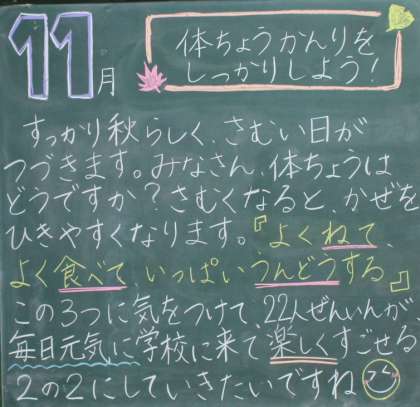 11月
体ちょうかんりを
しっかりしよう!
すっかり秋らしく、さむい日が
つづきます。みなさん、体ちょうは
どうですか?さむくなると、かぜを
ひきやすくなります。『よくねて、
よく食べて、いっぱいうんどうする』
この3つに気をつけて、22人ぜんいんが、
毎日元気に学校に来て楽しくすごせる
2の2にしていきたいですね